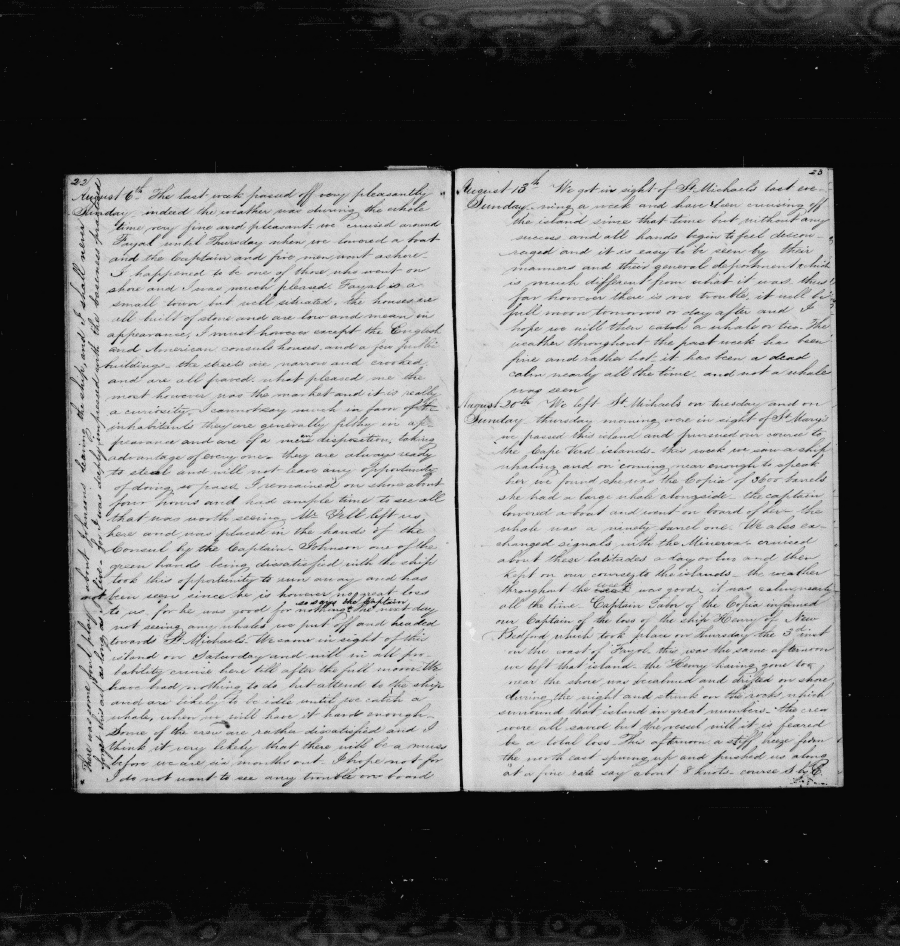 22
August 6th The last week passed off very pleasantly
Sunday indeed the weather was during the whole
time very fine and pleasant. we cruised around
Fayal until Thursday when we lowered a boat
and the Captain and five men went ashore.
I happened to be one of those who went on
shore and I was much pleased. Fayal is a
small town but well situated, the houses are
all built of stone and are low and mean in
appearance, I must however except the English
and American consuls houses and a few public
buildings. the streets are narrow and crooked
and are all paved. what pleased me the
most however was the market and it is really
a curiosity. I cannot say much in favor of the
inhabitants they are generally filthy in ap-
pearance and are of a mean disposition, taking
advantage of every one. they are always ready
to steal and will not leave any opportunity
of doing so pass. I remained on shore about
four hours and had ample time to see all
that was worth seeing. Mr Fell left us
here and was placed in the hands of the
Consul by the Captain. Johnson one of the
green hands being dissatisfied with the ship
took this opportunity to run away and has
not been seen since he is however no great loss
so says the Captain
to us, for he was good for nothing. the next day
not seeing any whales we put off and headed
towards St Michaels. We came in sight of this
island on Saturday and will in all pro-
bability cruise here till after the full moon. We
have had nothing to do but attend to the ship
and are likely to be idle until we catch a
whale, when we will have it hard enough.
Some of the crew are rather dissatisfied and I
think it very likely that there will be a muss
before we are six months out. I hope not for
I do not want to see any trouble on board
There was some foul play about Johnsons leaving the ship and I shall never
forget this as long as I live for I was deeply impressed with the baseness practised
23
August 13th We got in sight of St Michaels last eve-
Sunday ning a week and have been cruising off
the island since that time but without any
success and all hands begin to feel discou-
raged and it is easy to be seen by their
manners and their general deportment which
is much different from what it was. thus
far however there is no trouble, it will be
full moon tomorrow or day after and I
hope we will then catch a whale or two. The
weather throughout the past week has been
fine and rather hot, it has been a dead
calm nearly all the time and not a whale
was seen
August 20th We left St Michaels on tuesday and on
Sunday thursday morning were in sight of St Marys
we passed this island and pursued our course to
the Cape Verd islands. this week we saw a ship
whaling and on coming near enough to speak
her we found she was the Copia of 3600 barrels
she had a large whale alongside. the captain
lowered a boat and went on board of her. the
whale was a ninety barrel one. We also ex-
changed signals with the Minerva. cruised
about these latitudes a day or two and then
kept on our course to the islands. the weather
throughout the week was good, it was calm nearly
all the time. Captain Tabor of the Copia informed
our Captain of the loss of the ship Henry of New
Bedford which took place on thursday the 3d inst
on the coast of Fayal. this was the same afternoon
we left that island. the Henry having gone too
near the shore was becalmed and drifted on shore
during the night and struck on the rocks which
surround that island in great numbers. the crew
were all saved but the vessel will it is feared
be a total loss. This afternoon a stiff breeze from
the north east sprung up and pushed us along
at a fine rate say about 8 knots. course S by E.